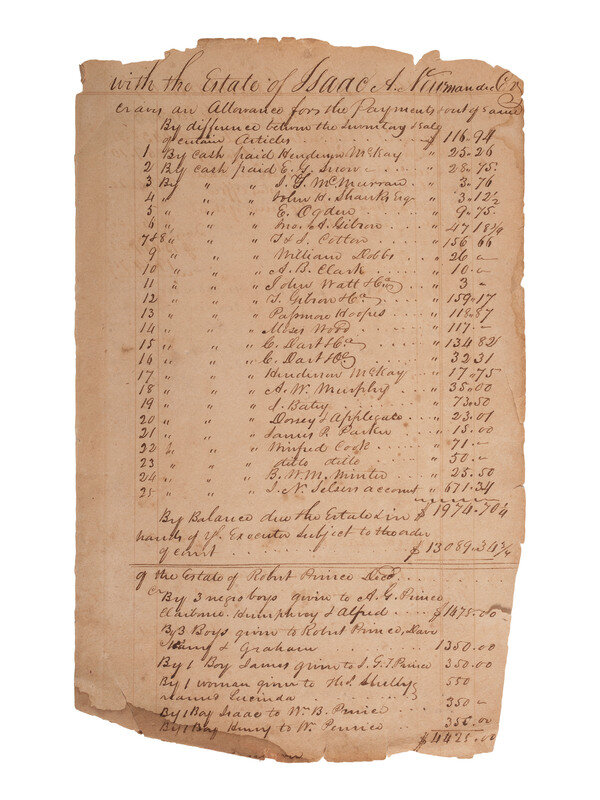 with the Estate of Isaac A.
craves an Allowance for the Payments out of same
By difference between the Inventory & Sale
of certain Articles . . . $ 116.94
1 By cash paid Henderson McKay " 25.26
2 By cash paid E. G. Snow " 28.75
3 By " " J. G. McMurran " 3.76
4 " " " John H. Shanks Esqr " 3.12½
5 " " " E. Ogden " 9.75
6 " " " Jno. A. Gibson " 47 18¾
7&8 " " " T & J. Cotton " 156 66
9 " " " William Dobbs " 26 "
10 " " " A. B. Clark " 10 "
11 " " " John Watt & Co " 3 "
12 " " " T. Gibson & Co " 159.17
13 " " " Passmore Hoopes " 118.87
14 " " " Moses Wood " 117. "
15 " " " C. Dart & Co " 134 82½
16 " " " C. Dart & Co " 32 31
17 " " " Henderson McKay " 17.75
18 " " " A. W. Murphy " 35.00
19 " " " J. Batey " 73.50
20 " " " Dorsey & Applegate " 23.01
21 " " " James P. Parker " 15.00
22 " " " Winfred Cook " 71. "
23 " " " ditto ditto " 50. "
24 " " " B. W. M. Minter " 25.50
25 " " " J. N. Selsers account " 671.34
$ 1974.70¼
By Balance due the Estate in
hands of yr. Executor Subject to the order
of court $ 13089.34¾
of the Estate of Robert Prince Decd
By 3 negro boys given to A. G. Prince
Claiborne, Humphrey & Alfred $1475.00
By 3 Boys given to Robert Prince, Dave
& Graham 1350.00
By 1 Boy James given to J. G. T. Prince 350.00
By 1 woman given to H. S. Shelby 550
named Lucinda
By 1 Boy Isaac to Wm B. Prince 350 "
By 1 Boy Henry to W. Prince 350.00
$4425.00